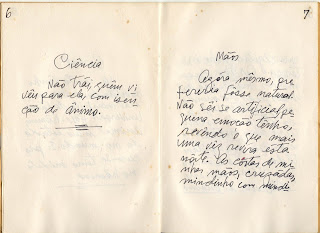 6
Ciência
Não trás, quem vi-
veu para ela, com isen-
ção de ânimo.
7
Mãos
Agora mesmo, pre
feria fosse natural.
Não sei se artificial pe
quena emoção tenho,
revendo o que mais
uma vez revra esta
noite. As costas de mi
nhas mãos, cruzadas,
mindinho com mindi